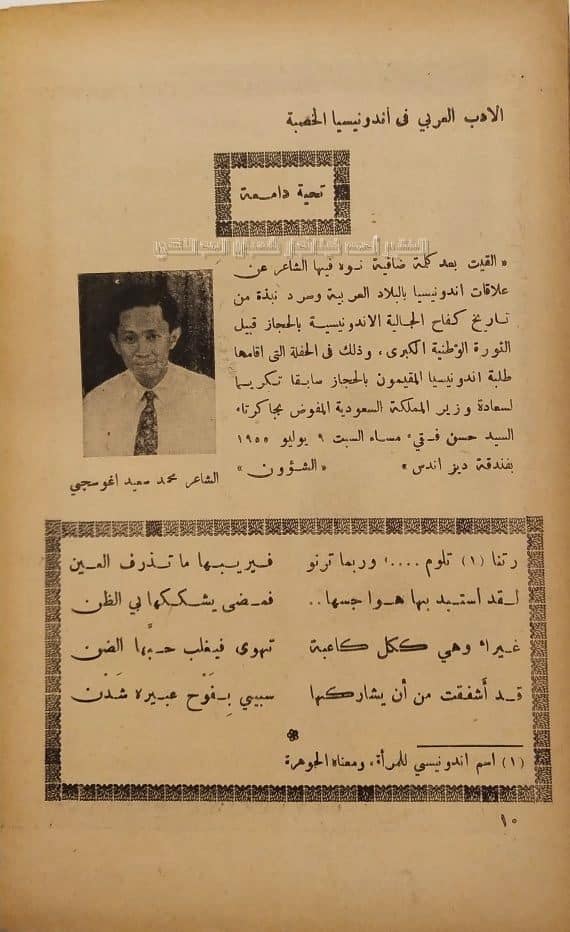 الادب العربي فى اندونيسيا الخصبة
تحية دامعة
« القيت بعد كلمة ضافية نوه فيها الشاعر عن
علاقات اندونيسيا بالبلاد العربية وسرد نبذة من
تاريخ كفاح الجالية الاندونيسية بالحجاز قبيل
الثورة الوطنية الكبرى، وذلك فى الحفلة التى اقامها
طلبة اندونيسيا المقيمون بالحجاز سابقا تكريما
لسعادة وزير المملكة السعودية المفوض بجاكرتاء
السيد حسن فقيء مساء السبت ٩ يوليو ١٩٥٥
بفندقة ديز اندس » « الشؤون »
الشاعر محمد سعيد اغوسجي
رتنا (١) تلوم ....! وربما ترنو فيريبها ما تذرف العين
لقد أستبد بها هواجسها .. فمضى يشككها بي الظن
غيراء وهي ككل كاعبة تهوى فيغلب حبَّها الضن
قد أشفقت من أن يشاركها سببي بِفَوْح عبيره شَدْن
(١) اسم اندونيسي للمرأة، ومعناه الجوهرة
١٠